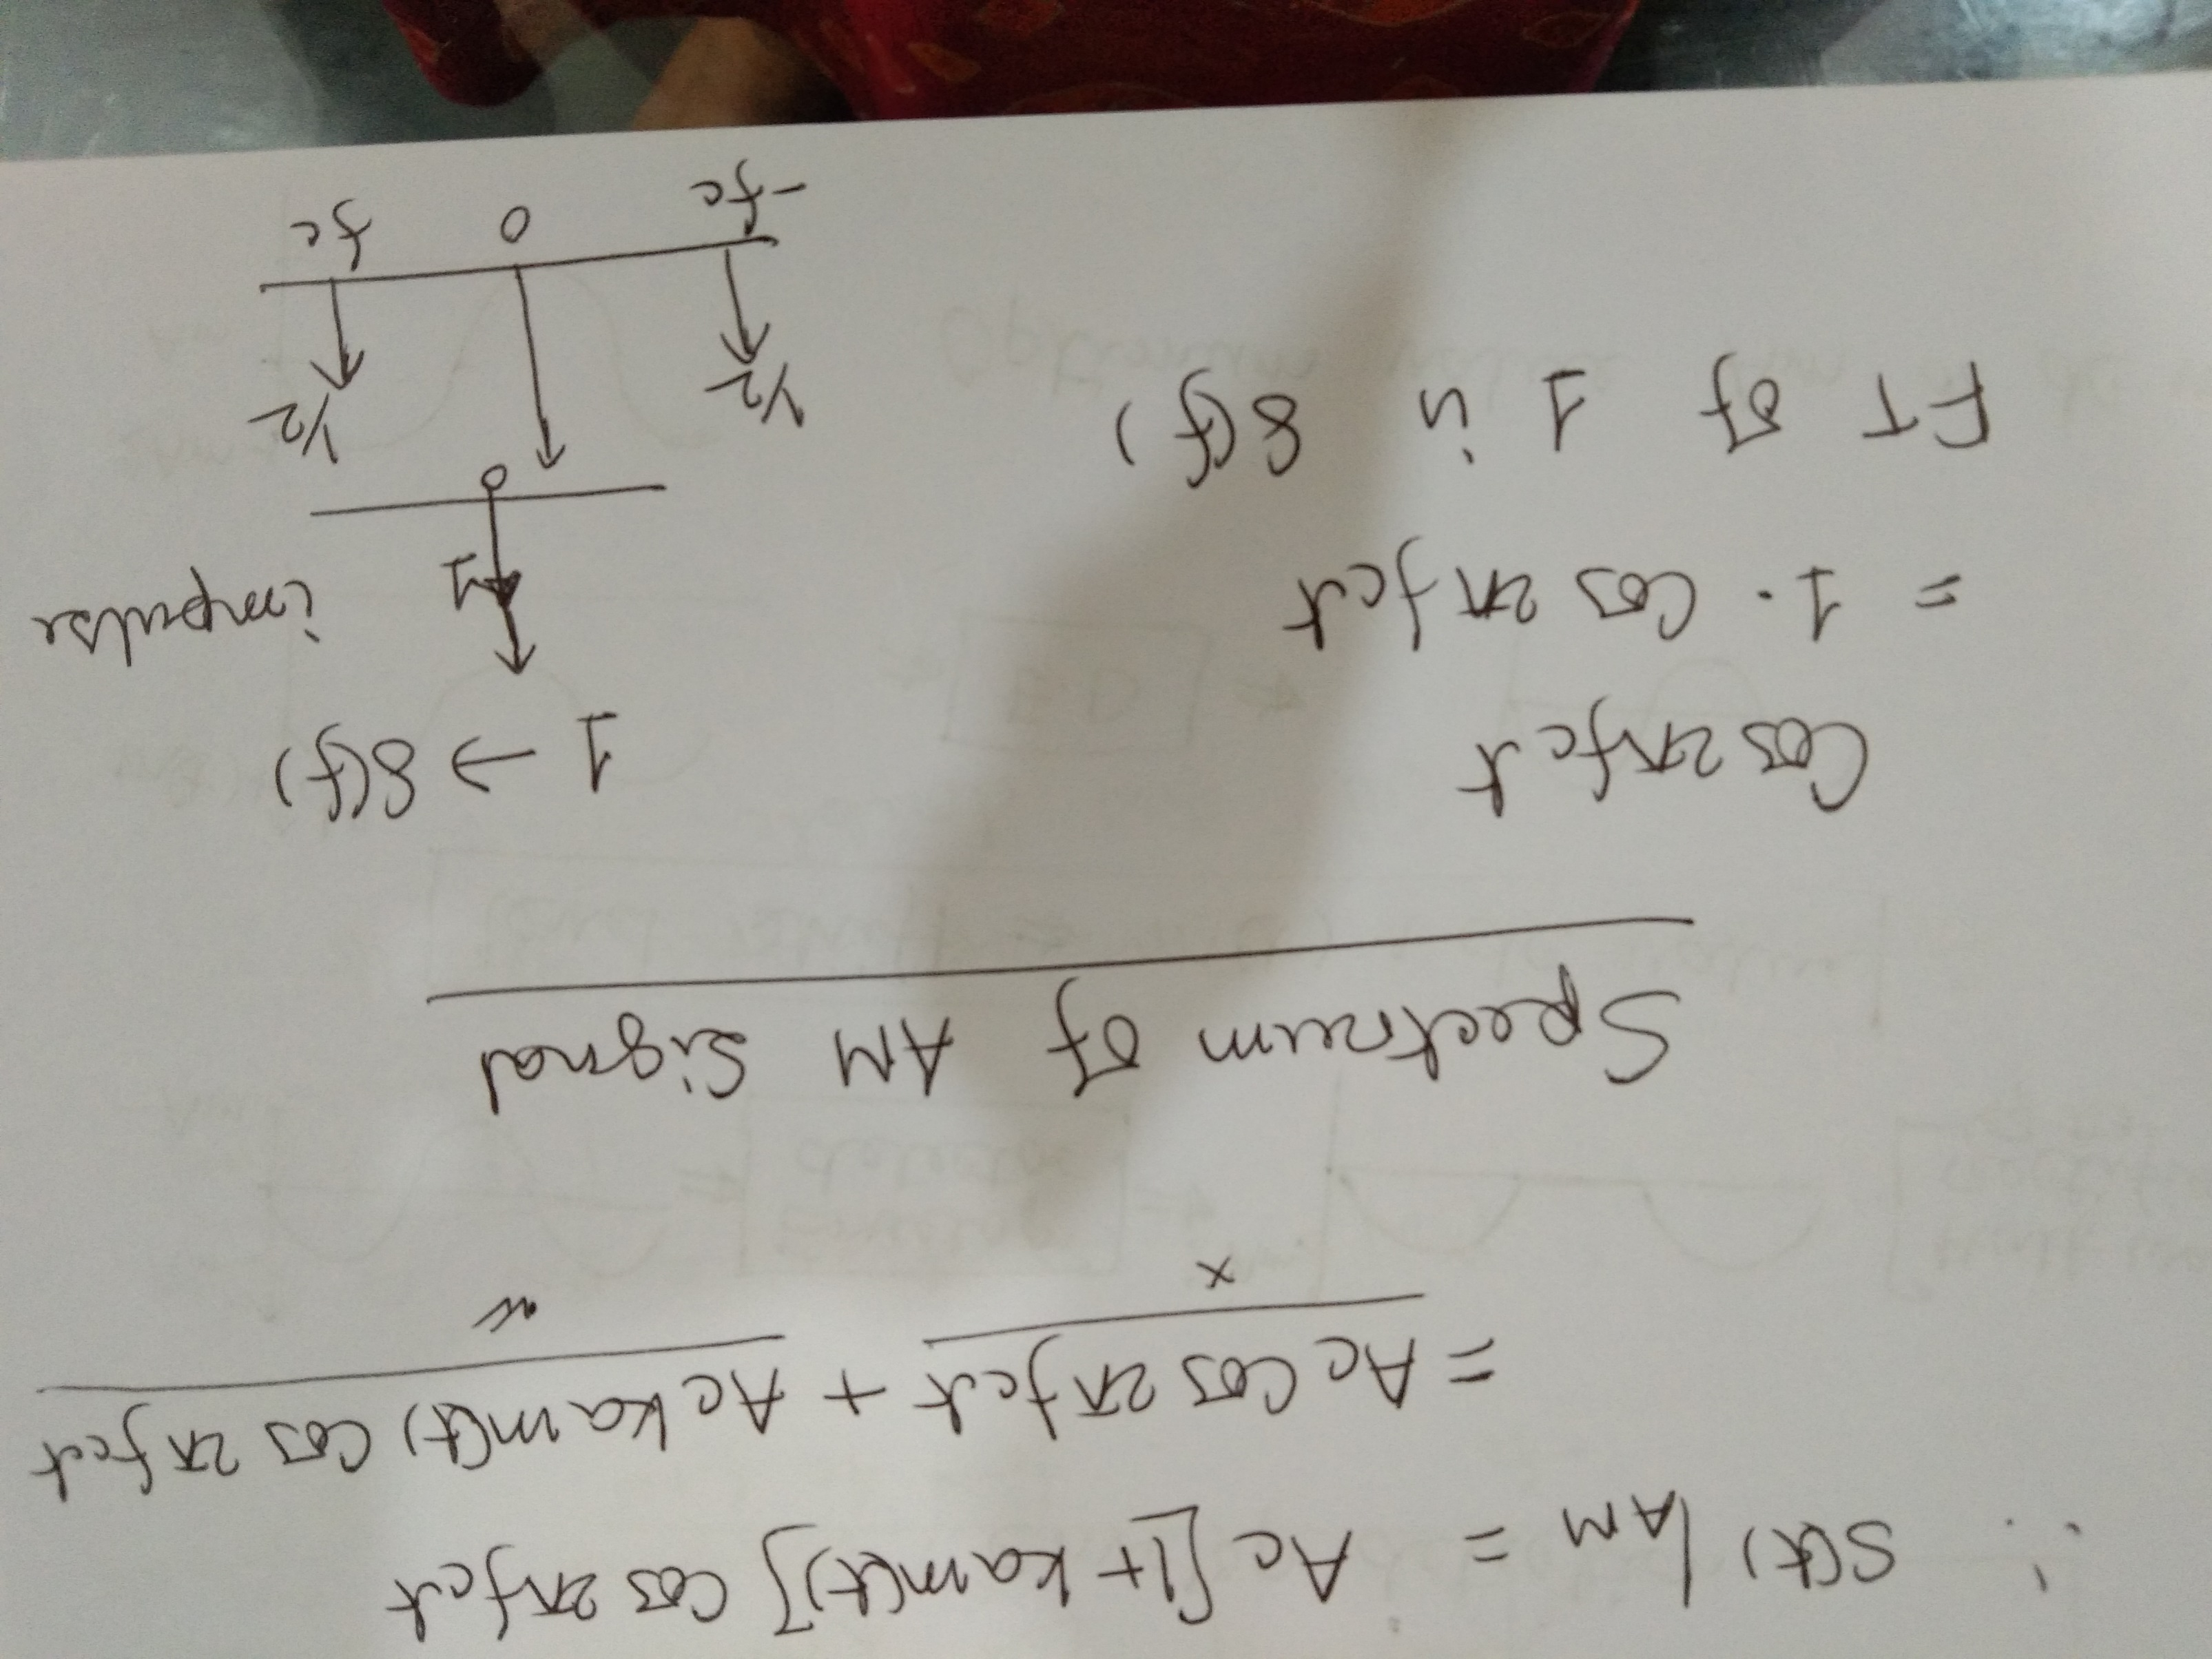 ∴ S(t)|AM = Ac[1+kam(t)] Cos 2πfct
= Ac Cos 2πfct + Ac kam(t) Cos 2πfct
x
Spectrum of AM Signal
Cos 2πfct
1 → δ(f)
= 1. Cos 2πfct
1 impulse
0
FT of 1 is δ(f)
1/2 1/2
-fc 0 fc